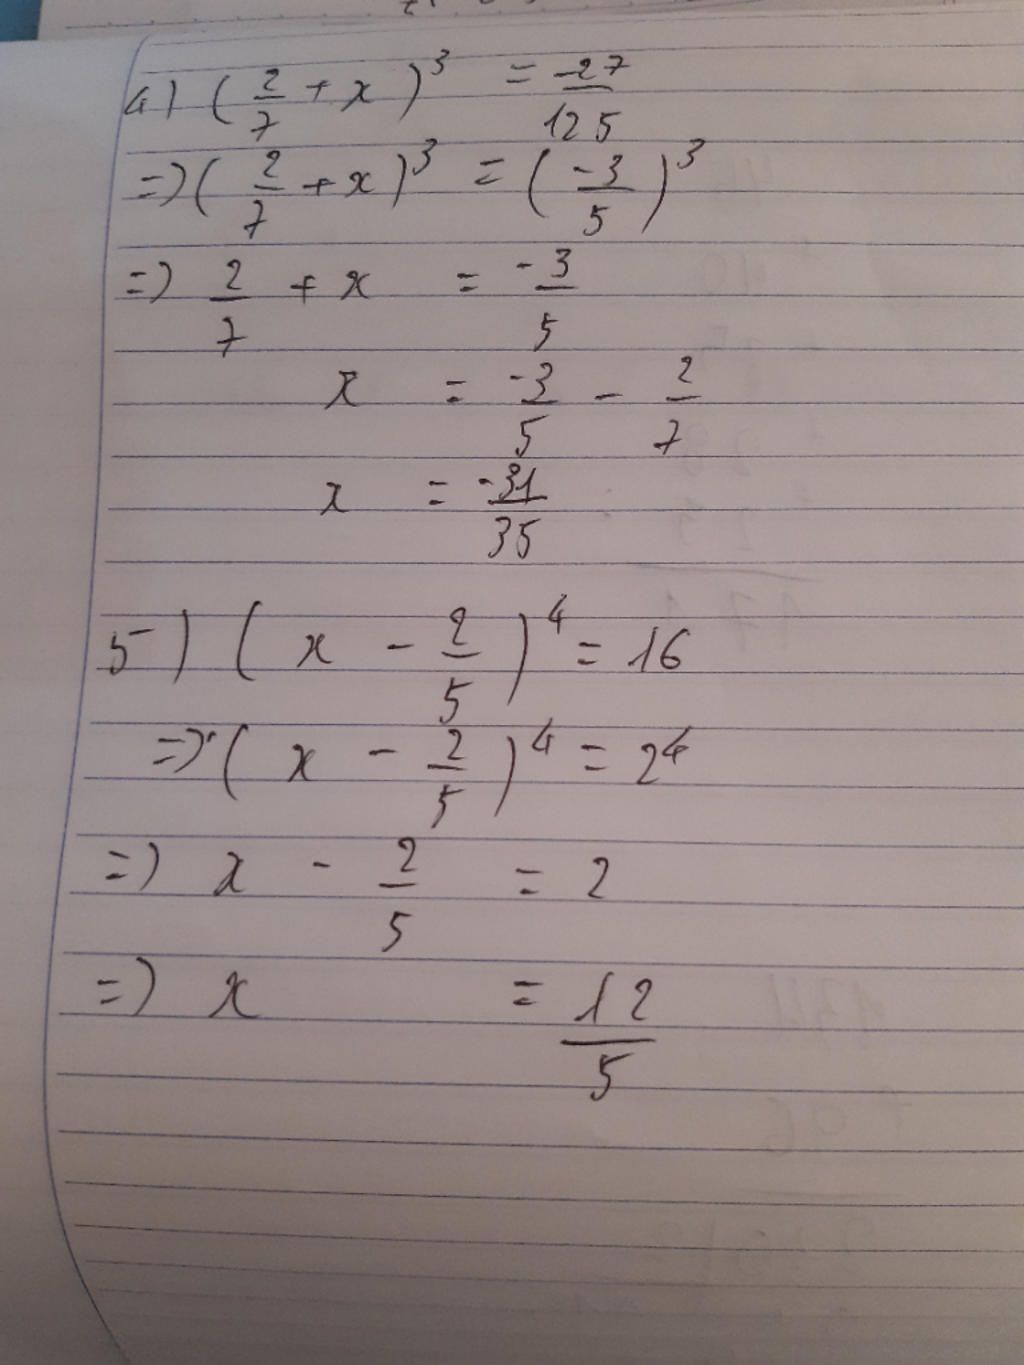 4) (2/7 + x)³ = -27/125
=> (2/7 + x)³ = (-3/5)³
=> 2/7 + x = -3/5
x = -3/5 - 2/7
x = -31/35
5) (x - 2/5)⁴ = 16
=> (x - 2/5)⁴ = 2⁴
=> x - 2/5 = 2
=> x = 12/5